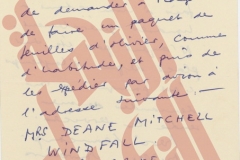 de demander à
de faire un paquet de
feuilles d'olivier, comme
d'habitude, et puis de
les expédier par avion à
l'adresse suivante :—
MRS DEANE MITCHELL
WINDFALL